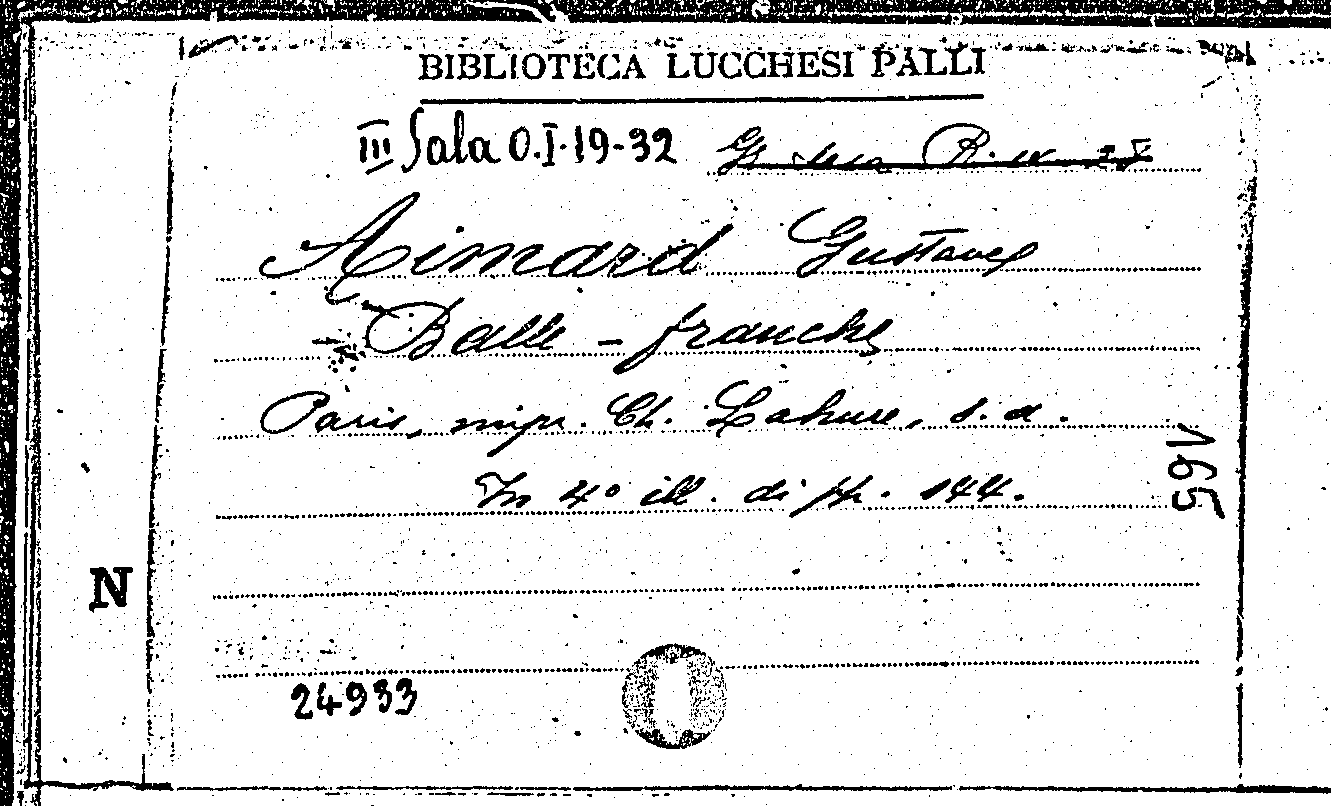 BIBLIOTECA LUCCHESI PALLI
III Sala O.I.19-32
Aimard Gustave
Balle-franche
Paris, impr. Ch. Lahure, s. a.
In 4º ill. di pp. 144.
N
24933